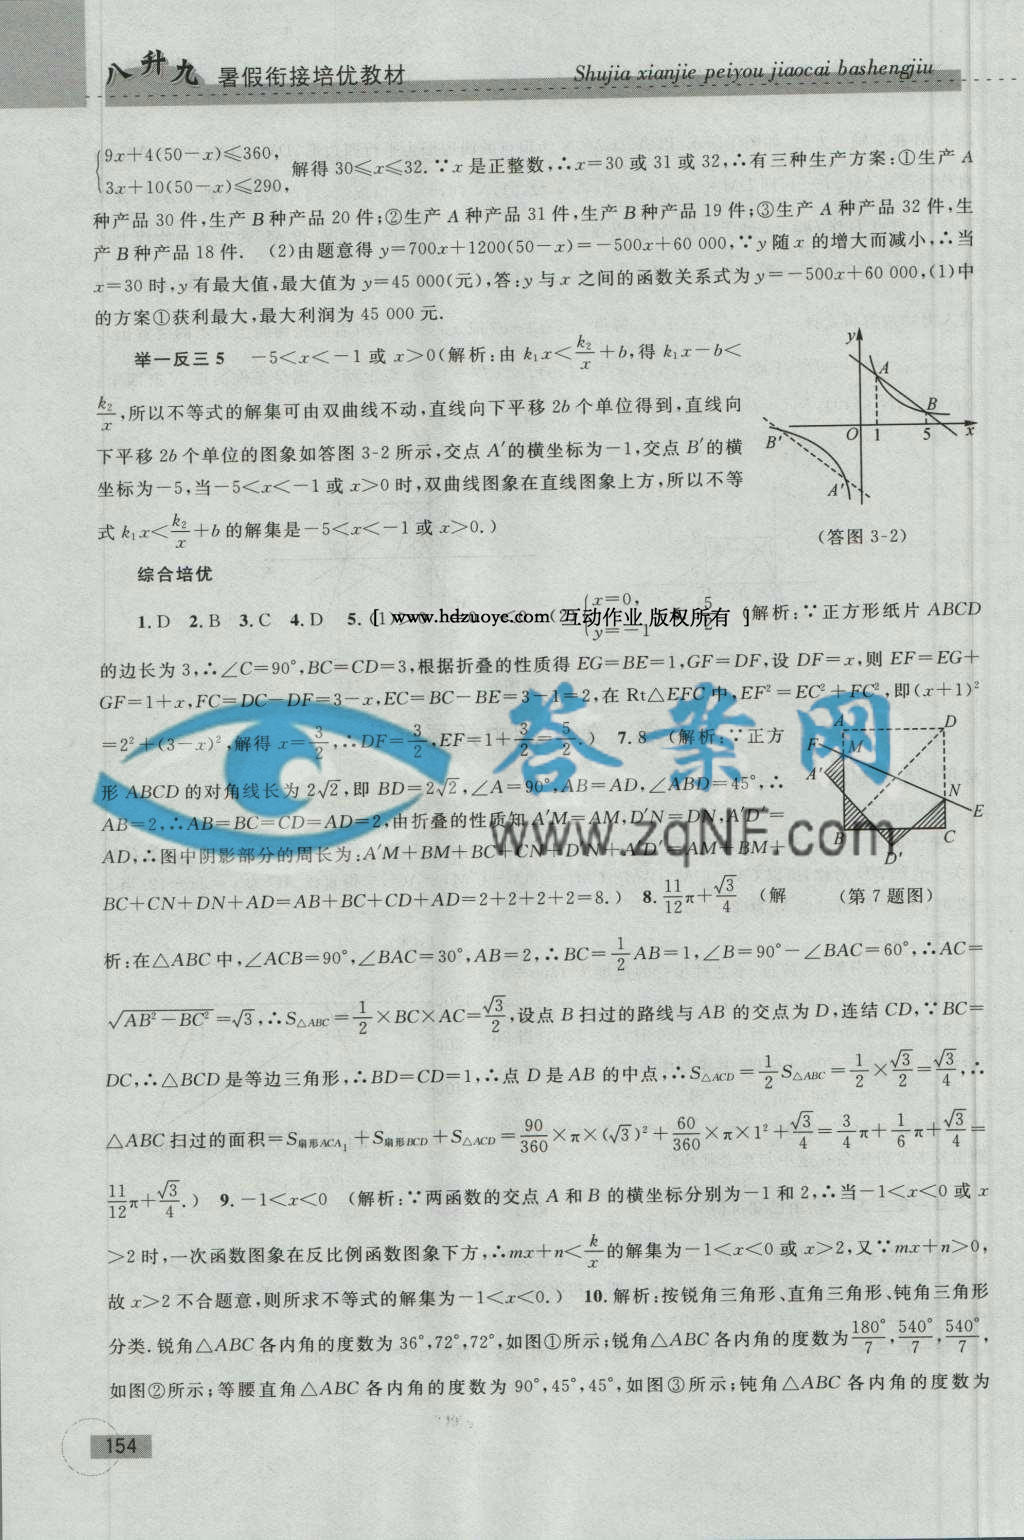 八升九 暑假衔接培优教材 Shujia xianjie peiyou jiaocai bashengjiu
{9x+4(50-x)≤360,
3x+10(50-x)≤290, 解得 30≤x≤32. ∵x 是正整数,∴x=30 或 31 或 32,∴有三种生产方案:①生产 A
种产品 30 件,生产 B 种产品 20 件;②生产 A 种产品 31 件,生产 B 种产品 19 件;③生产 A 种产品 32 件,生
产 B 种产品 18 件. (2)由题意得 y=700x+1200(50-x)=-500x+60 000,∵y 随 x 的增大而减小,∴当
x=30 时,y 有最大值,最大值为 y=45 000(元),答:y 与 x 之间的函数关系式为 y=-500x+60 000,(1)中
的方案①获利最大,最大利润为 45 000 元.
举一反三 5 -5<x<-1 或 x>0(解析:由 k₁x<k₂/x+b,得 k₁x-b<
k₂/x,所以不等式的解集可由双曲线不动,直线向下平移 2b 个单位得到,直线向
下平移 2b 个单位的图象如答图 3-2 所示,交点 A′的横坐标为-1,交点 B′的横
坐标为-5,当-5<x<-1 或 x>0 时,双曲线图象在直线图象上方,所以不等
式 k₁x<k₂/x+b 的解集是-5<x<-1 或 x>0.)
y A B O 1 5 x B′ A′
(答图 3-2)
综合培优
1. D 2. B 3. C 4. D 5. (1) (2){x=0, y=-1 5/2 (解析:∵正方形纸片 ABCD
[ www.hdzuoye.com 互动作业 版权所有 ]
的边长为 3,∴∠C=90°,BC=CD=3,根据折叠的性质得 EG=BE=1,GF=DF,设 DF=x,则 EF=EG+
GF=1+x,FC=DC-DF=3-x,EC=BC-BE=3-1=2,在 Rt△EFC 中,EF²=EC²+FC²,即(x+1)²
=2²+(3-x)²,解得 x=3/2,∴DF=3/2,EF=1+3/2=5/2.) 7. 8 (解析:∵正方
形 ABCD 的对角线长为 2√2,即 BD=2√2,∠A=90°,AB=AD,∠ABD=45°,∴
AB=2,∴AB=BC=CD=AD=2,由折叠的性质知 A′M=AM,D′N=DN,A′D′=
AD,∴图中阴影部分的周长为:A′M+BM+BC+CN+D′N+A′D′=AM+BM+
BC+CN+DN+AD=AB+BC+CD+AD=2+2+2+2=8.) 8. 11/12π+√3/4 (解
A D F M A′ N E B C D′
(第 7 题图)
答案网
www.zqNF.com
析:在△ABC 中,∠ACB=90°,∠BAC=30°,AB=2,∴BC=1/2AB=1,∠B=90°-∠BAC=60°,∴AC=
√(AB²-BC²)=√3,∴S△ABC=1/2×BC×AC=√3/2,设点 B 扫过的路线与 AB 的交点为 D,连结 CD,∵BC=
DC,∴△BCD 是等边三角形,∴BD=CD=1,∴点 D 是 AB 的中点,∴S△ACD=1/2S△ABC=1/2×√3/2=√3/4,∴
△ABC 扫过的面积=S扇形ACA₁+S扇形BCD+S△ACD=90/360×π×(√3)²+60/360×π×1²+√3/4=3/4π+1/6π+√3/4=
11/12π+√3/4.) 9. -1<x<0 (解析:∵两函数的交点 A 和 B 的横坐标分别为-1 和 2,∴当-1<x<0 或 x
>2 时,一次函数图象在反比例函数图象下方,∴mx+n<k/x的解集为-1<x<0 或 x>2,又∵mx+n>0,
故 x>2 不合题意,则所求不等式的解集为-1<x<0.) 10. 解析:按锐角三角形、直角三角形、钝角三角形
分类. 锐角△ABC 各内角的度数为 36°,72°,72°,如图①所示;锐角△ABC 各内角的度数为180°/7,540°/7,540°/7,
如图②所示;等腰直角△ABC 各内角的度数为 90°,45°,45°,如图③所示;钝角△ABC 各内角的度数为
154